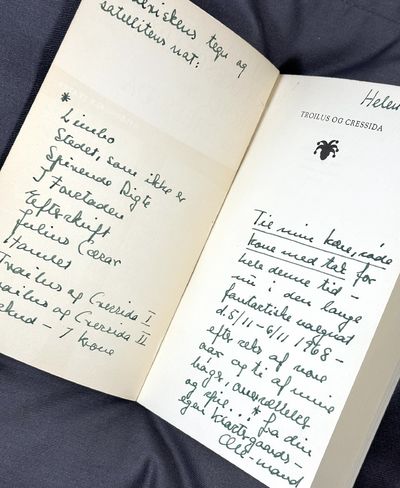 tegn og
satellitens nat:
*
Limbo
Stedet, som ikke er
Spirende Digte
I Forstaden
Efterskrift
Julius Cæsar
Hamlet
Troilus og Cressida I
Troilus og Cressida II
- 7 krone
Helen
TROILUS OG CRESSIDA
Til min kære, søde
kone med tak for
hele denne tid -
nu i den lange
fantastiske valgnat
d. 5/11-6/11 1968 -
efter seks af vore
aar og ti af mine
bøger, oversættelser
og spil...* fra din
egen Kiærtegaards-
Ole-mand